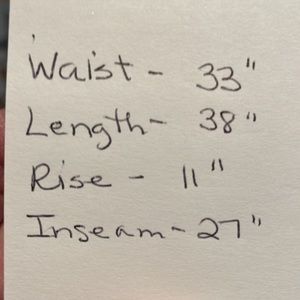 Waist - 33"
Length - 38"
Rise - 11"
Inseam - 27"